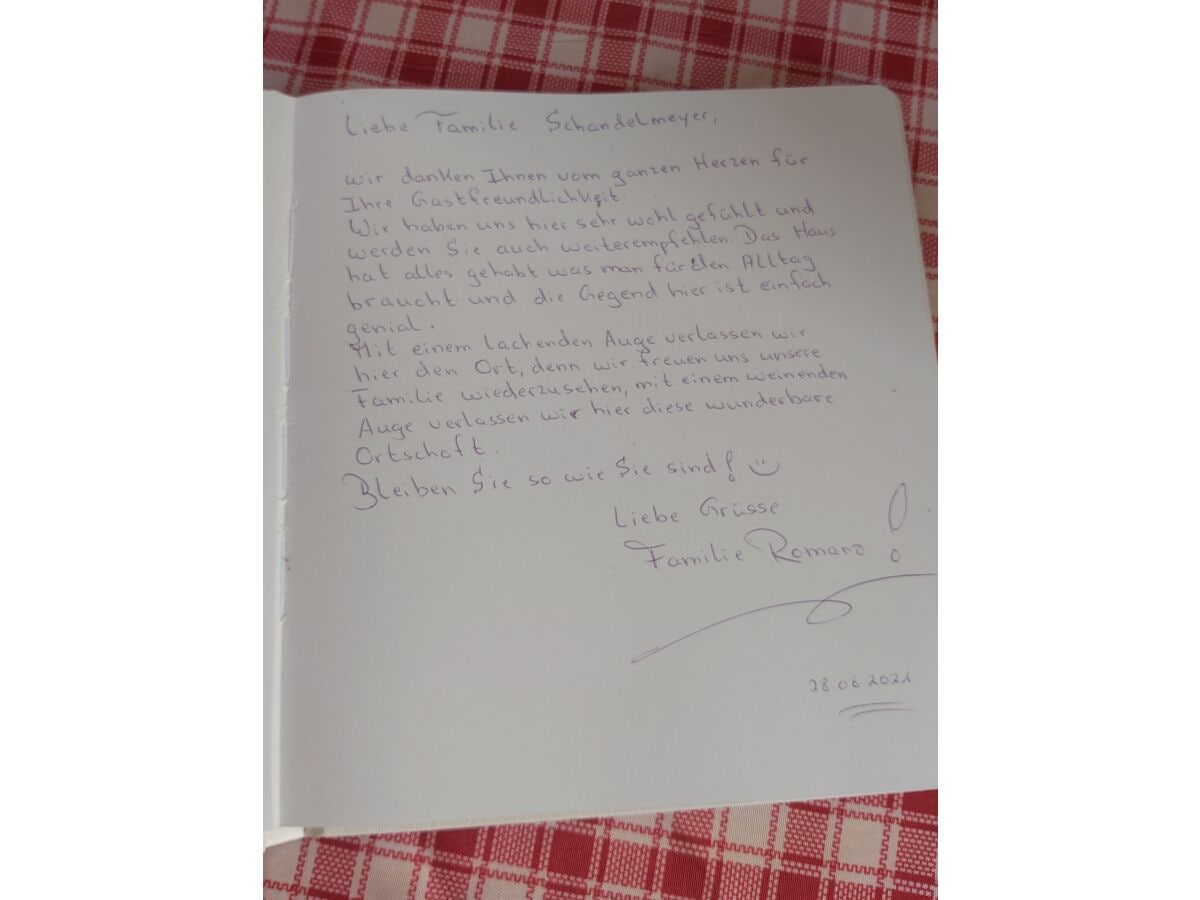 Liebe Familie Schandelmeyer,
wir danken Ihnen vom ganzen Herzen für
Ihre Gastfreundlichkeit.
Wir haben uns hier sehr wohl gefühlt und
werden Sie auch weiterempfehlen. Das Haus
hat alles gehabt was man für den Alltag
braucht und die Gegend hier ist einfach
genial.
Mit einem lachenden Auge verlassen wir
hier den Ort, denn wir freuen uns unsere
Familie wiederzusehen, mit einem weinenden
Auge verlassen wir hier diese wunderbare
Ortschaft.
Bleiben Sie so wie Sie sind! :)
Liebe Grüsse
Familie Romano !
28.08.2021